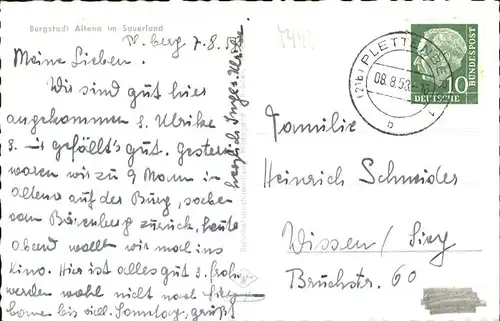 Burgstadt Altena im Sauerland
Pl.berg 7.8.58
Meine Lieben.
Wir sind gut hier
angekommen u. Ulrike
gefällt's gut. Gestern
waren wir zu 9 Mann in
Altena auf der Burg, soeben
vom Bärenberg zurück, heute
abend wollt wir mal ins
Kino. Hier ist alles gut u. froh
werden wohl nicht nach
bis viell. Sonntag, grüßt
herzlich
(21b) PLETTENBERG
08.8.58
b
10
DEUTSCHE
BUNDESPOST
Familie
Heinrich Schneider
Wissen/Sieg
Brückstr. 60